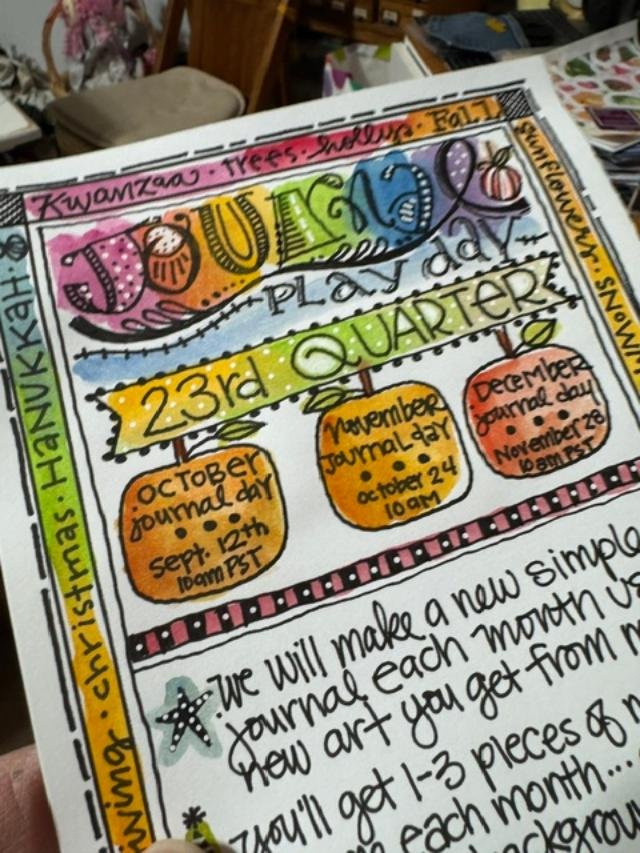 Kwanzaa · trees · hollys · Fall
JOURNAL
PLAY day
23rd QUARTER
OCTOBER
journal day
Sept. 12th
10am PST
November
Journal day
october 24
10 AM
December
journal day
November 28
10am PST
sunflowers ·
christmas · HANUKKAH ·
we will make a new simple
journal each month
new art you get from
you'll get 1-3 pieces of
each month...